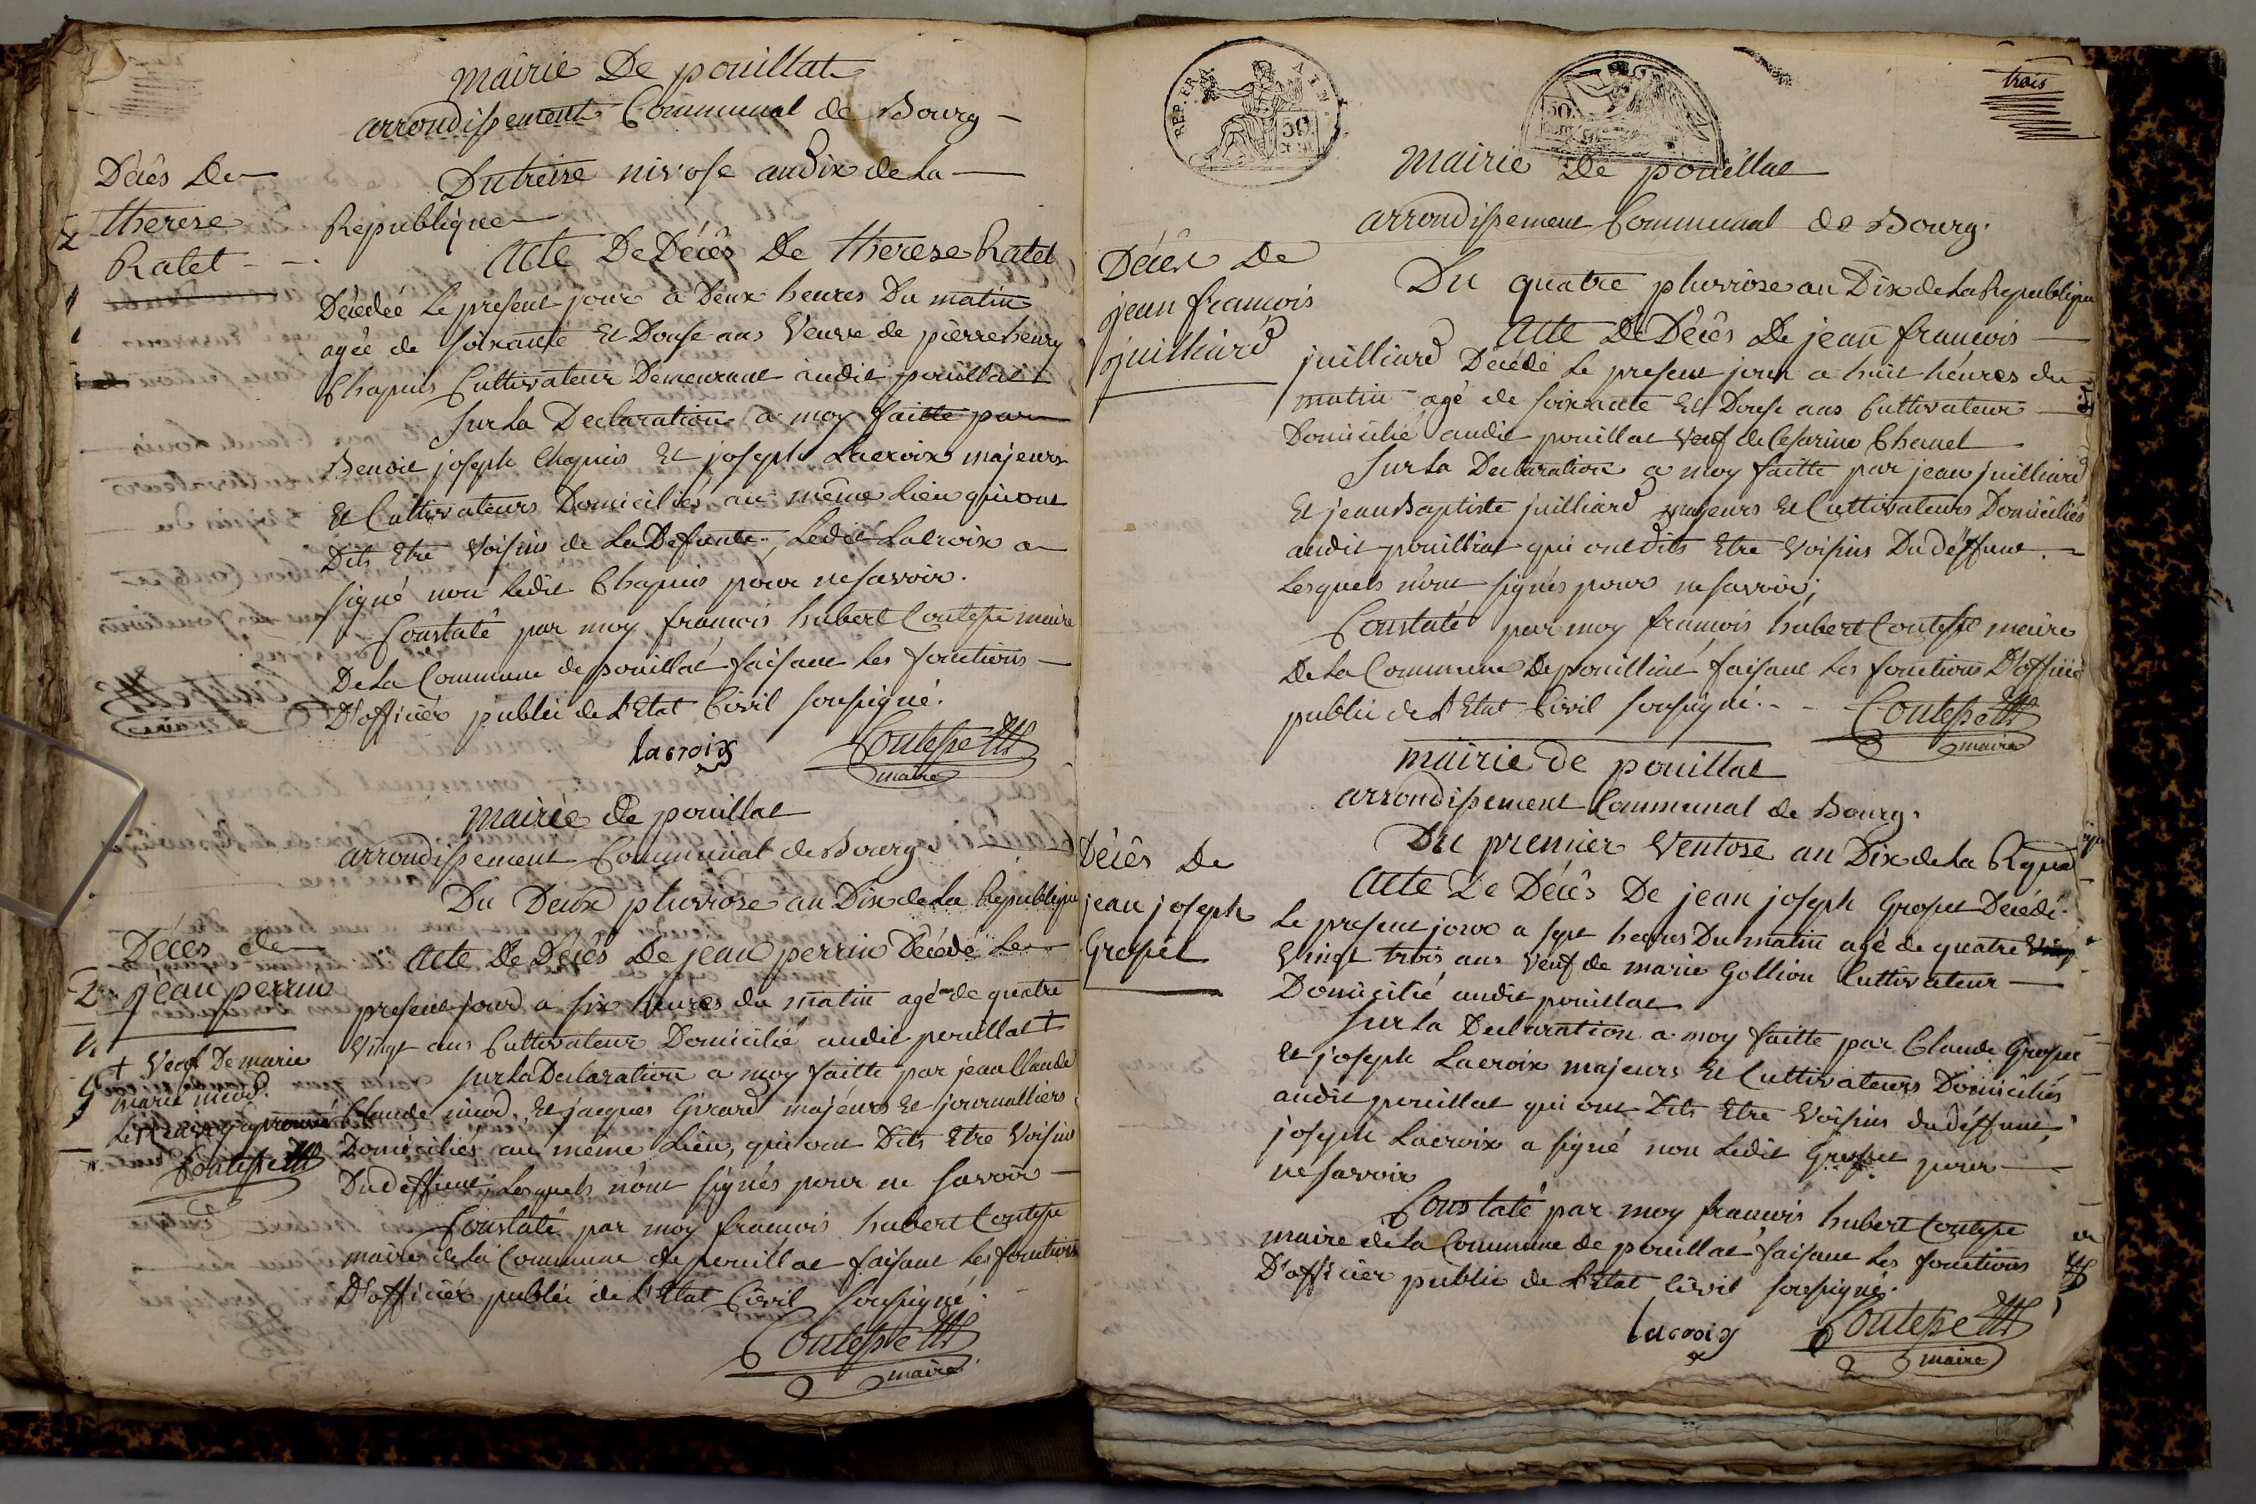 mairie De pouillat
arrondissement Communal de Bourg
Du treise nivose an Dix de La
Republique
Décès De
therese
Ratet
Acte De Décès De therese Ratet
Décédée Le present jour a Deux heures Du matin
agée de soixante Et Douse ans Veuve de pierre henry
Chapuis Cultivateur Demeurant audit pouillat
Sur La Declaration a moy faitte par
Benoit joseph Chapuis Et joseph Lacroix majeurs
Et Cultivateurs Domiciliés au même Lieu qui ont
Dits Etre Voisins de La Defunte, Ledit Lacroix a
signé non Ledit Chapuis pour ne savoir.
Constaté par moy francois hubert Contesse maire
De La Commune de pouillat faisant Les fonctions
D'officier public de L'Etat Civil soussigné.
lacroix
Contesse
maire
mairie De pouillat
arrondissement Communal de Bourg.
Du Deux pluviose an Dix de La Republique
Décès de
jean perrin
Acte De Décès De jean perrin Décédé Le
present jour a six heures du matin agé de quatre
Vingt ans Cultivateur Domicilié audit pouillat +
+ Veuf De marie
marie nicod.
Contesse
Sur La Declaration a moy faitte par jean Claude
Claude nicod, Et jacques Girard majeurs Et journalliers
Domiciliés au même Lieu, qui ont Dits Etre Voisins
Du deffunt, Lesquels n'ont signés pour ne savoir
Constaté par moy francois hubert Contesse
maire de La Commune de pouillat faisant Les fonctions
D'officier public de L'Etat Civil soussigné.
Contesse
maire
REP. FRA
50
50
trois
Mairie De pouillat
arrondissement Communal de Bourg.
Du quatre pluviose an Dix de La Republique
Décès De
jean francois
juilliard
Acte De Décès De jean francois
juilliard Décédé Le present jour a huit heures du
matin agé de soixante Et Douse ans Cultivateur
Domicilié audit pouillat Veuf de Cesarine Chanel
Sur La Declaration a moy faitte par jean juilliard
Et jean Baptiste juilliard majeurs Et Cultivateurs Domiciliés
audit pouilliat qui ont dits Etre Voisins Du déffunt.
Lesquels n'ont signés pour ne savoir;
Constaté par moy francois hubert Contesse maire
De La Commune De pouilliat faisant Les fonctions D'officier
public de L'Etat Civil soussigné.
Contesse
maire
mairie de pouillat
arrondissement Communal de Bourg.
Du premier Ventose an Dix de La Repub
Décès De
jean joseph
Grospet
Acte De Décès De jean joseph Grospet Décédé
Le present jour a sept heures Du matin agé de quatre
Vingt trois ans Veuf de marie Gollion Cultivateur
Domicilié audit pouillat
Sur La Declaration a moy faitte par Claude Grospet
Et joseph Lacroix majeurs Et Cultivateurs Domiciliés
audit pouillat qui ont Dits Etre Voisins du déffunt,
joseph Lacroix a signé non Ledit Grospet pour
ne savoir
Constaté par moy francois hubert Contesse
maire de La Commune de pouillat faisant Les fonctions
D'officier public de L'Etat Civil soussigné.
lacroix
Contesse
maire